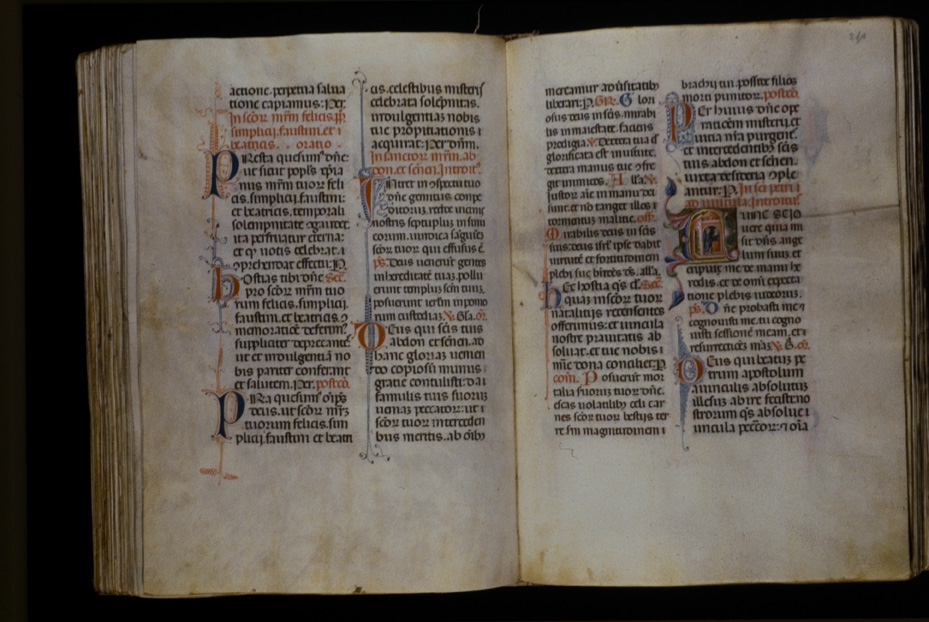 actione. perpetua salua
tione capiamus: Per
In scōr mr̄m felicis. p̄
simplicij. faustini. et i
beatricis. oratio
PResta quesumꝰ dn̄e:
ut sicut popl̄s xp̄ia
nus mr̄m tuoꝝ feli
cis. simplicij. faustini:
et beatricis. temporali
solempnitate
ita perfruatur eterna:
et qͥ uotis celebrat.
comprehendat effectu. P.
hOstias tibi dn̄e
pro scōr mr̄m tuo
rum felicis. simplicij.
faustini. et beatricis.
memoratiōe deferimꝰ.
suppliciter deprecantes:
ut et indulgentiā no
bis pariter conferant
et salutem. Per. postcō.
PREsta quesumꝰ om̄ps
deus. ut scōr mr̄z
tuorum felicis. sim
plicij. faustini et beatri
cis. celestibus misterijs
celebrata solēpnitas.
indulgentias nobis
tue propitiationis
acquirat: Per dn̄m.
In sanctoꝝ mr̄m. ab
don. et senen. Introitꝰ.
INtret in ꝯspectu tuo
dn̄e gemitus compe
ditorum. redde uicinis
nostris septuplum in sinu
eorum. uindica
scōr tuor qui effusus ē.
ps. Deus uenerūt gentes
in hereditatē tuā. pollu
erunt templum scm̄ tuum.
posuerunt ierl̄m in pomo
rum custodiā. Gl̄a. or.
DEus qui scīs tuis
abdon et senen. ad
hanc gloriaꝫ uenien
di copiosū munus
gratie contulisti: da
famulis tuis suoꝝ
ueniaꝫ peccatoꝝ: ut
scōr tuor interceden
bus meritis. ab oībꝫ
mereamur aduersitatibꝫ
liberari. P. Gr̄. Glori
osus deus in scīs. mirabi
lis in maiestate. faciens
prodigia. Dextera tua dn̄e
glorificata est in uirtute.
dextera manus tue ꝯfre
git inimicos. Alla.
Iustoꝝ aīe in manu dei
sunt. et nō tanget illos
tormentum malitie. off.
Mirabilis deus in scīs
suis: deus isrl̄ ipse dabit
uirtutē et fortitudinem
plebi sue. alla.
hEc hostia qs
quaꝫ in scōr tuor
natalitijs recensentes
offerimus: et uincula
nostre prauitatis ab
soluat. et tue nobis
mīe dona conciliet. P.
com. Posuerūt mor
talia suoꝝ tuoꝝ dn̄e.
escas uolatilibꝫ celi. car
nes scōr tuor bestijs ter
re. sm̄ magnitudinem
brachij tui. posside filios
morti punitoꝝ. postcō.
PEr huius dn̄e ope
rationem misterij. et
uitia nr̄a purgent.
et intercedentibꝫ scīs
tuis abdon et senen.
iusta desideria ꝯple
antur. P. In scī petri
ad uincula. Introitꝰ
NUnc scio
uere quia mi
sit dn̄s ange
lum suum. et
eripuit me de manu he
rodis. et de om̄i expecta
tione plebis iudeoꝝ.
ps. Dn̄e probasti me
cognouisti me. tu cogno
uisti sessionē meam. et
resurrectionē meā. G. or.
DEus qui beatum pe
trum apostolum
a uinculis absolutum
illesum abire fecisti: no
strorum qs absolue
uincula peccōr: ꝯ oīa